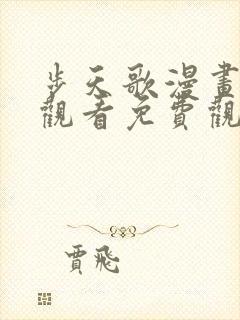 步天歌漫畫
觀看免費觀
賈飛